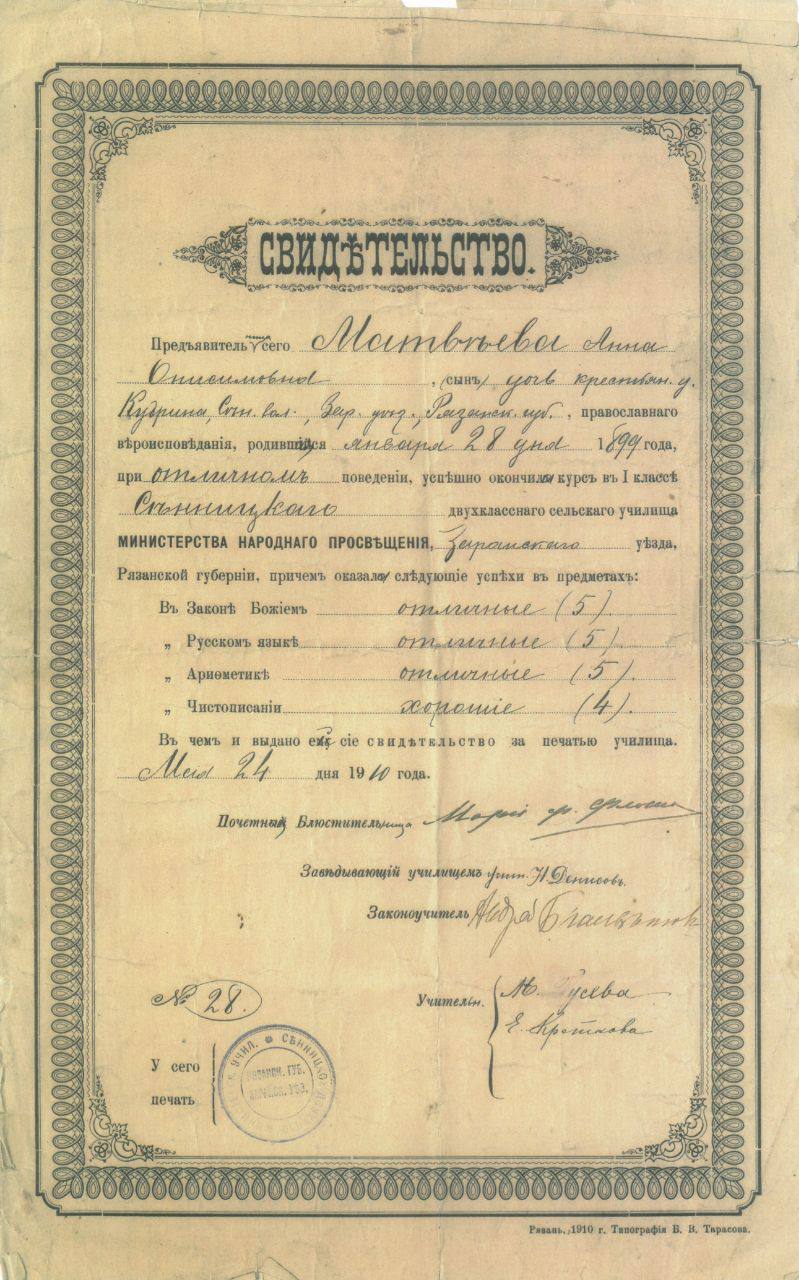 СВИДѢТЕЛЬСТВО.
Предъявительница сего Матвѣева Анна
Онисимовна, (сынъ) дочь крестьян. д.
Кудрина, Сѣн. вол., Зар. уѣз., Рязанск. губ., православнаго
вѣроисповѣданія, родившаяся января 28 дня 1899 года,
при отличномъ поведеніи, успѣшно окончила курсъ въ I классѣ
Сѣнницкаго двухкласснаго сельскаго училища
МИНИСТЕРСТВА НАРОДНАГО ПРОСВѢЩЕНІЯ, Зарайскаго уѣзда,
Рязанской губерніи, причемъ оказала слѣдующіе успѣхи въ предметахъ:
Въ Законѣ Божіемъ отличные (5).
„ Русскомъ языкѣ отличные (5).
„ Ариѳметикѣ отличные (5).
„ Чистописаніи хорошіе (4).
Въ чемъ и выдано ей сіе свидѣтельство за печатью училища.
Мая 24 дня 1910 года.
Почетный Блюстительница Марія
Завѣдывающій училищемъ учит. Н Денисовъ.
Законоучитель
Учительн. М. Гусева
Е.
№ 28.
У сего
печать
УЧИЛ. СѢННИЦКО
РЯЗАНСК. ГУБ.
ЗАРАЙСК. УѢЗ.
Рязань, 1910 г. Типографія Б. В. Тарасова.